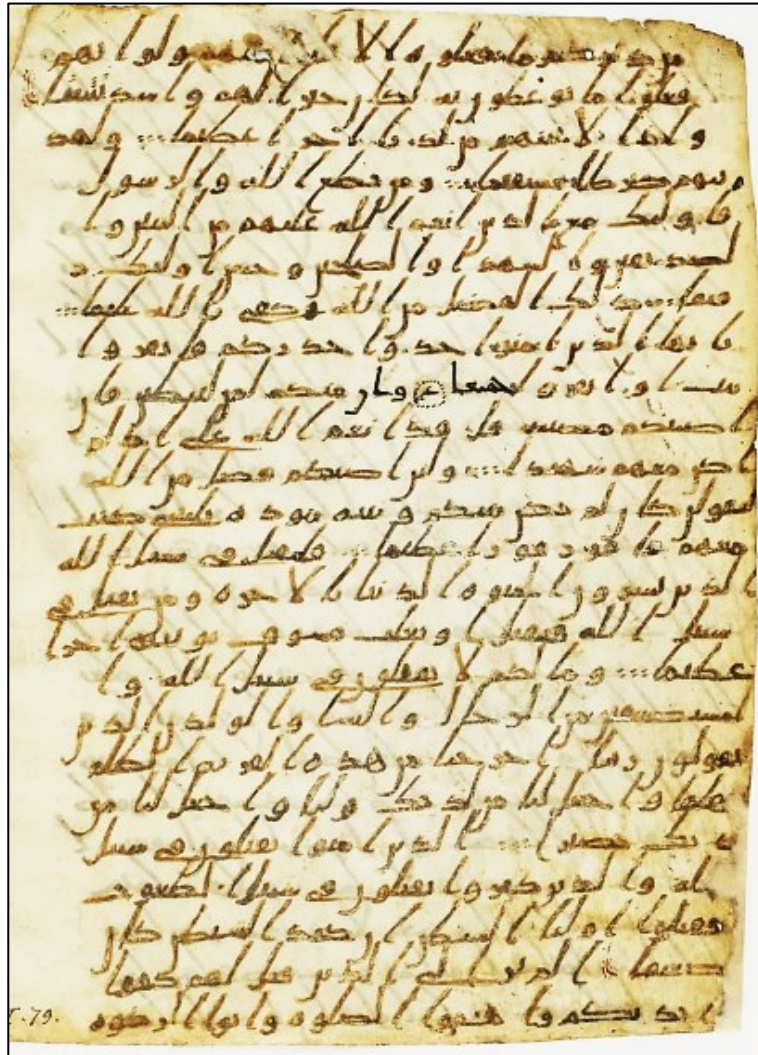 من ديركم ما فعلوه الا قليل منهم ولو انهم
فعلوا ما يوعظون به لكان خيرا لهم واشد تثبيتا
واذا لاتينهم من لدنا اجرا عظيما ولهد
ينهم صرطا مستقيما ومن يطع الله والرسول
فاوليك مع الذين انعم الله عليهم من النبين وا
لصديقين والشهدا والصلحين وحسن اوليك ر
فيقا ذلك الفضل من الله وكفى بالله عليما
يايها الذين امنوا خذوا حذركم فانفروا
ثبات او انفروا جميعا وان منكم لمن ليبطين فان
اصبتكم مصيبة قل قد انعم الله على اذ لم
اكن معهم شهيدا ولين اصبكم فضل من الله
ليقولن كان لم تكن بينكم وبينه مودة يليتني كنت
معهم فافوز فوزا عظيما فليقتل في سبيل الله
الذين يشرون الحيوة الدنيا بالاخرة ومن يقتل في
سبيل الله فيقتل او يغلب فسوف نوتيه اجرا
عظيما وما لكم لا تقتلون في سبيل الله وا
لمستضعفين من الرجل والنسا والولدن الذين
يقولون ربنا اخرجنا من هذه القرية الظلم
اهلها واجعل لنا من لدنك وليا واجعل لنا من
لدنك نصيرا الذين امنوا يقتلون في سبيل
الله والذين كفروا يقتلون في سبيل الطغوت
فقتلوا اوليا الشيطن ان كيد الشيطن كان
ضعيفا الم تر الى الذين قيل لهم كفوا
ايديكم واقيموا الصلوة واتوا الزكوة
79.